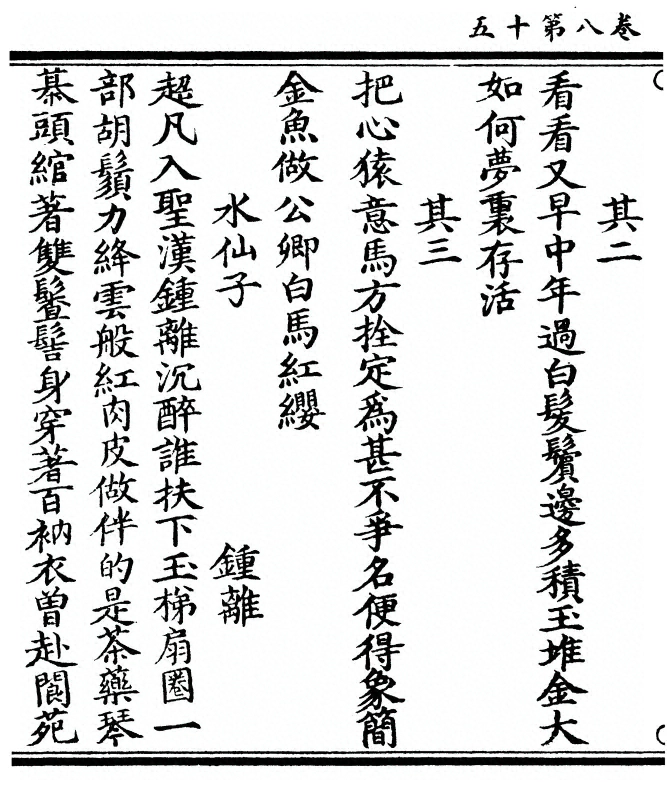 卷八第十五
其二
看看又早中年過白髮鬢邊多積玉堆金大
如何夢裏存活
其三
把心猿意馬方拴定爲甚不爭名便得象簡
金魚做公卿白馬紅纓
水仙子　鍾離
超凡入聖漢鍾離沉醉誰扶下玉梯扇圈一
部胡鬚力絳雲般紅肉皮做伴的是茶藥琴
棊頭綰著雙鬟髻身穿著百衲衣曾赴閬苑